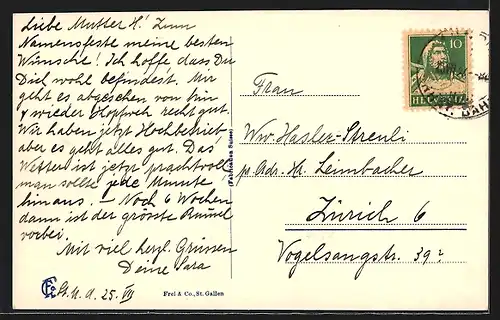 Liebe Mutter H! Zum
Namensfeste meine besten
Wünsche! Ich hoffe dass Du
Dich wohl befindest. Mir
geht es abgesehen von hin
& wieder Kopfweh recht gut.
Wir haben jetzt Hochbetrieb
aber es geht alles gut. Das
Wetter ist jetzt prachtvoll
man sollte jede Minute
hinaus. – Noch 6 Wochen
dann ist der grösste Rummel
vorbei.
Mit viel herzl. Grüssen
Deine Sara
St. M. d. 25. VII
Frei & Co., St. Gallen
10
HELVETIA
BAH
Frau
Ww. Hasler-Streuli
p. Adr. Hr. Leimbacher
Zürich 6
Vogelsangstr. 39